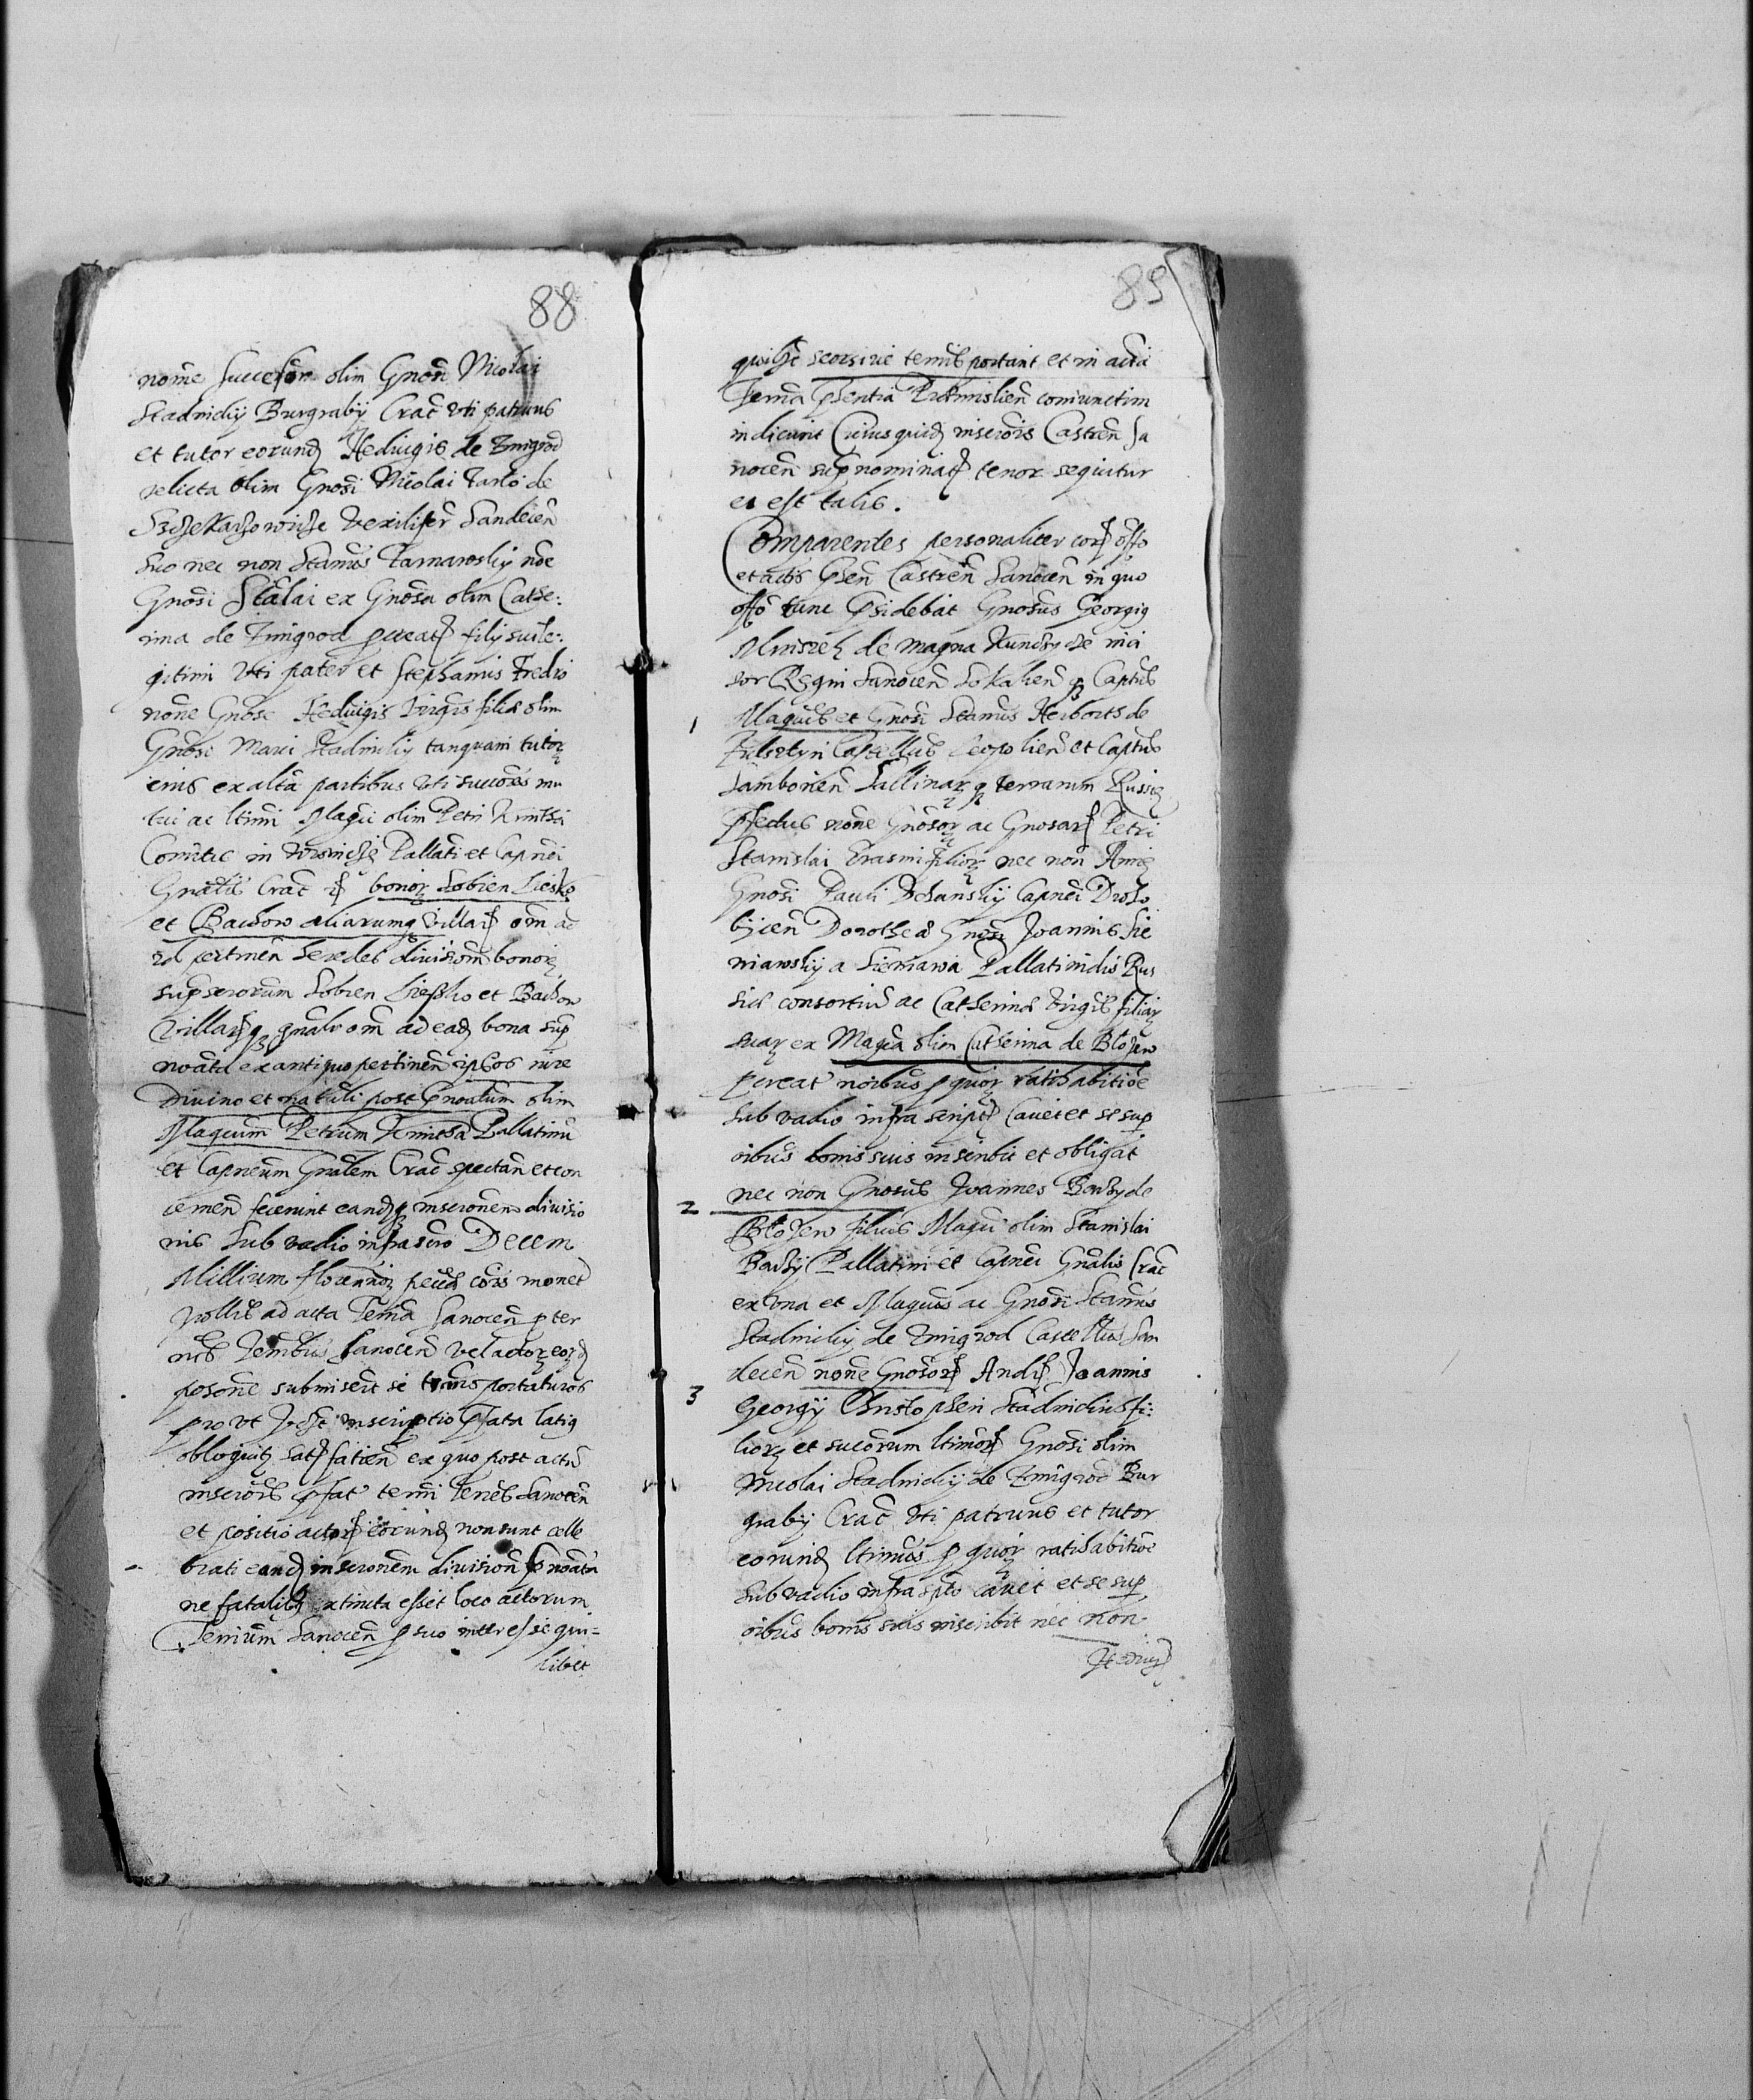 88
nome succesor olim Gnosi Nicolai
Stadnicky Burgraby Crac Vti patruus
et tutor eorund Heduigis de Zmigrod
relicta olim Gnosi Nicolai Tarlo de
Vexilifer Sandecen
suo nec non Stanus Tarnawsky noe
Gnosi Stalai ex Gnosa olim Cathe:
rina de Zmigrod pcreat filij sui le:
gitimi Vti pater et Stephanus Fredro
nome Gnose Heduigis Virgis filia olim
Gnosi Marci Stadnicky tanquam tutor
eius ex altra partibus Vti succores mu
tui ac ltimi Magci olim Petri Kmitha
Comitis in Wisnicze Pallati et Capnei
Gnalis Crac bonor Sobien Liesko
et Bachow aliarumq villar om ad
id pertinen heredes divisiom bonor
supscrorum Sobien Liesko et Bachow
villarq gnalr om ad ead bona sup
noata ex antiquo pertinen ipsos iure
Divino et natuli post Gnoalum olim
Magcum Petrum Kmitha Pallatinu
et Capneum Gnalem Crac spectan et con
cernen fecerunt eandq inscronem divisio
nis Sub vadio infrascro Decem
Millium florenor pecu cois monet
pollic ad acta Terra Sanocen p ter
nis Terribus Sanocen vel actor eord
posone submisert se transportaturos
pro vt inscriptio pfata latig
obloquit satfacien ex quo post actu
inscrois pfat termi Terres Sanocen
et positio actor eorund non sunt celle
brati eand inscronem division pnoatu
ne fatalib extincta esset loco actorum
Terrium Sanocen p suo interesse qui=
libet
89
seorsive termis portant et in acta
Terra psentia Premislien coniunctim
inducunt Cuius quid inscrois Castren Sa
nocen supnominat tenor sequitur
et est talis.
Comparentes personaliter cor offo
et actis psen Castren Sanocen in quo
offo tunc psidebat Gnosus Georgig
Mniszek de magna Kunczycze inci
sor Regni Sanocen Sokalien q Captus
1 Magcus et Gnosi Stanus Herborth de
Fulsztyn Castellus Leopolien et Captus
Samborien Sallinar q terrarum Russie
pfectus nome Gnosor ac Gnosar Petri
Stanislai Erasmi filior nec non Anne
Gnosi Pauli Capnei Droho
bicen Dorothea Gnosi Joannis Sie
niawsky a Sieniawa Pallatinidis Rus
sie consortiu ac Catherina Virgis filiar
suar ex Magca olim Catherina de Blozew
pcreat noibus p quor ratihabitioe
sub vadio infra script Cavet et se sup
oibus bonis suis inscribit et obligat
2 nec non Gnosus Joannes Barzy de
Blozew filius Magci olim Stanislai
Barzy Pallatini et Capnei Gnalis Crac
ex una et Magcus ac Gnosi Stanus
Stadnicky de Zmigrod Castellus San
decen nome Gnosor Andr Joannis
3 Georgij Christopheri Stadnicius fi:
lior et sucorum ltimor Gnosi olim
Nicolai Stadnicky de Zmigrod Bur
graby Crac Vti patruus et tutor
eorund ltimus p quor ratihabitioe
sub vadio infraspto cavet et se sup
oibus bonis suis inscribit nec non
Heduig